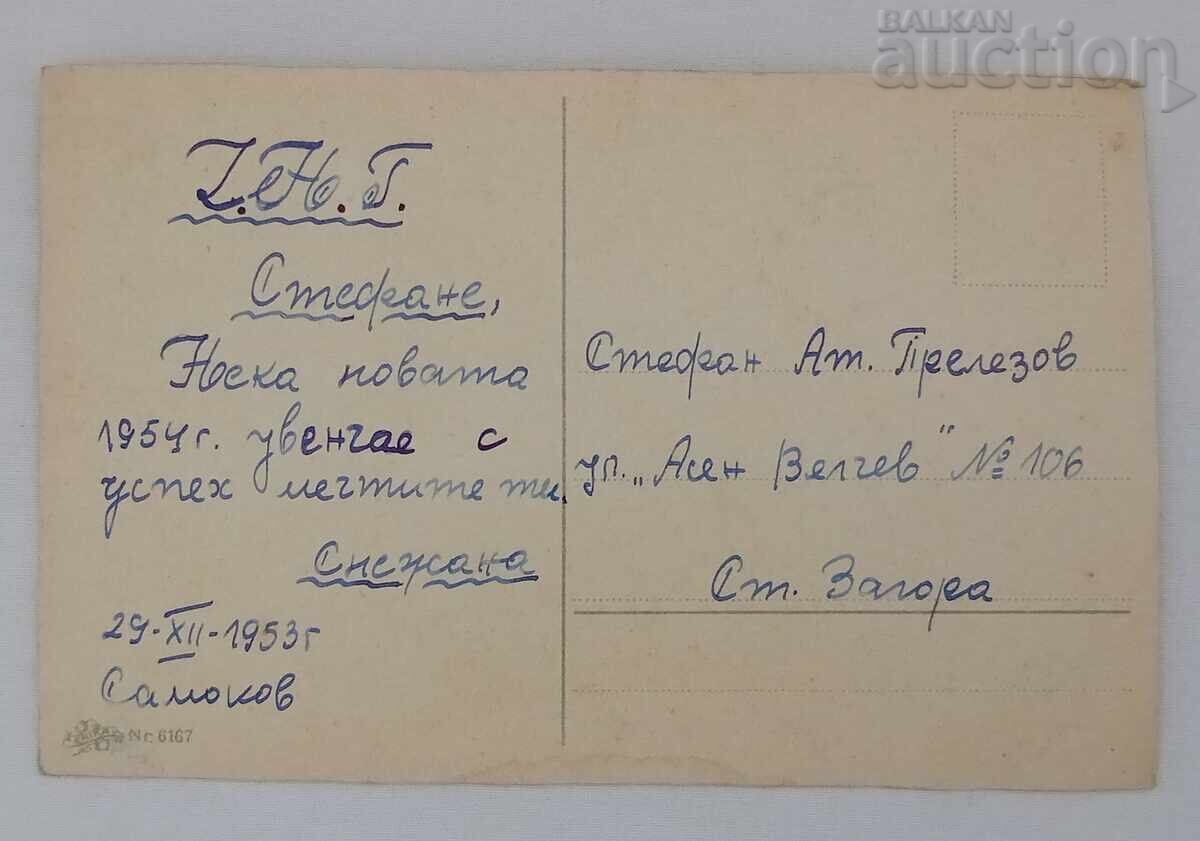 BALKAN
auction
Ч.Н.Г.
Стефане,
Нека новата
1954 г. увенчае с
успех мечтите ти.
Снежана
29-XII-1953 г
Самоков
Nr. 6167
Стефан Ат. Прелезов
ул. „Асен Велчев" № 106
Ст. Загора